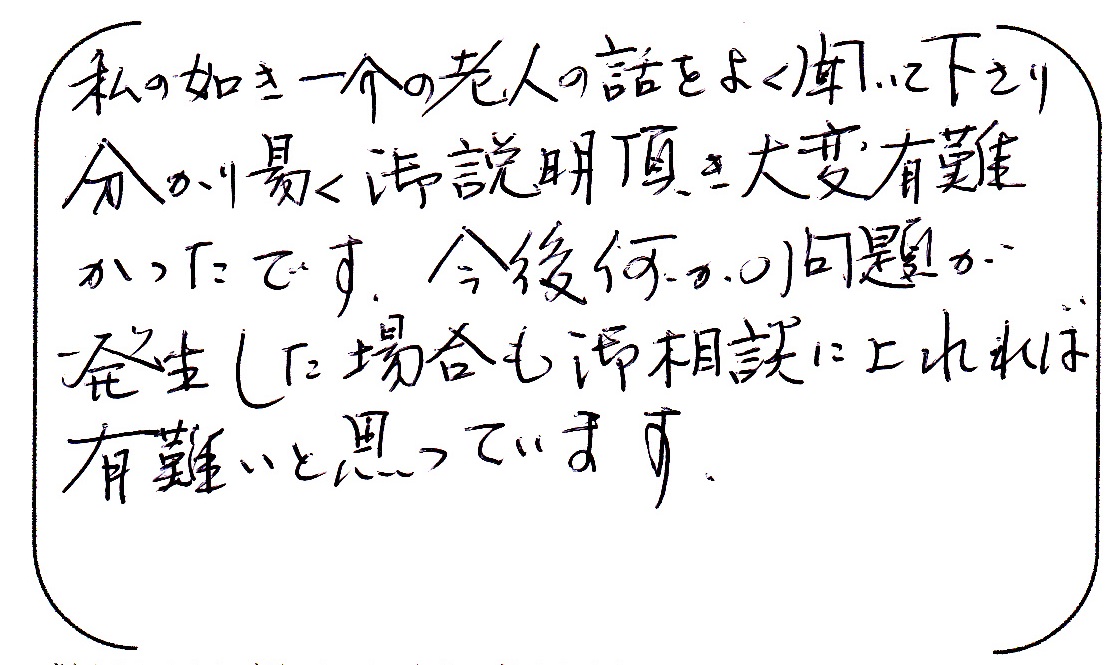 私の如き一介の老人の話をよく聞いて下さり
分かり易く御説明頂き大変有難
かったです. 今後何かの問題が
発生した場合も御相談に上れれば
有難いと思っています.